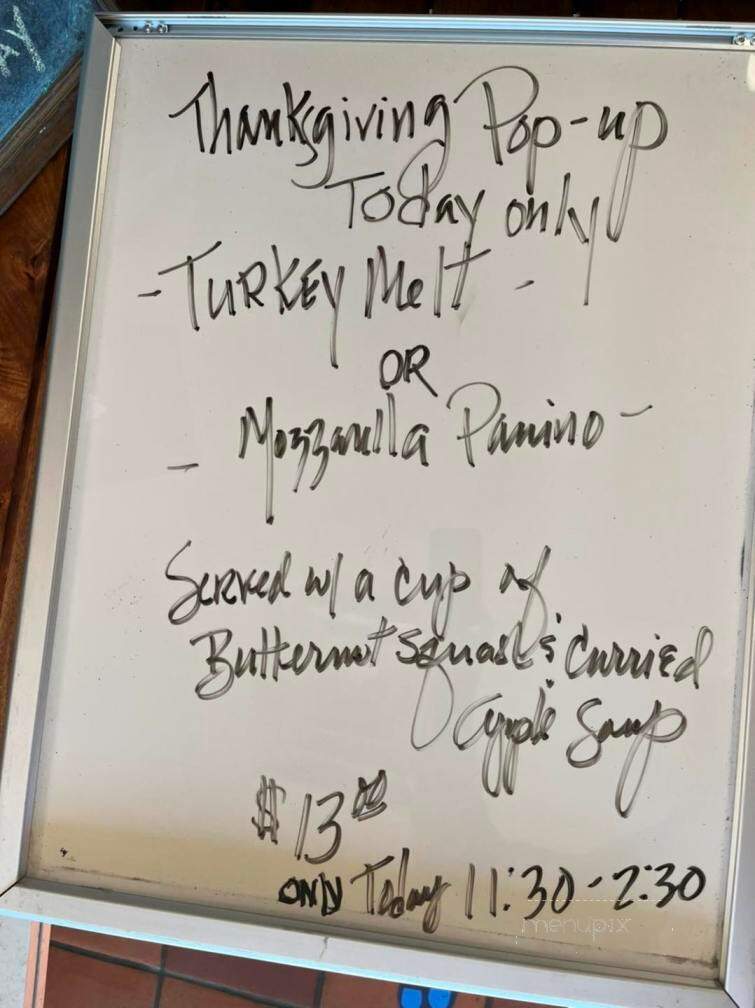 AY
Thanksgiving Pop-up
Today only
- TURKEY Melt -
OR
- Mozzarella Panino -
Served w/ a cup of
Butternut Squash & Curried
Apple Soup
$13.00
ONLY Today 11:30-2:30
menupix